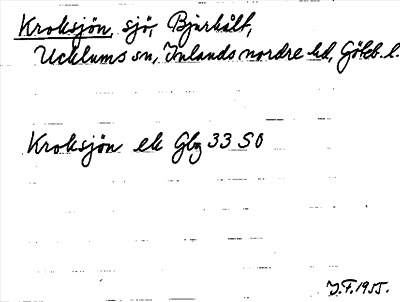 Kroksjön, sjö, Bjurhult,
Ucklums sn, Inlands nordre hd, Göteb. l.
Kroksjön ek Gbg 33 SO
J.F. 1955.